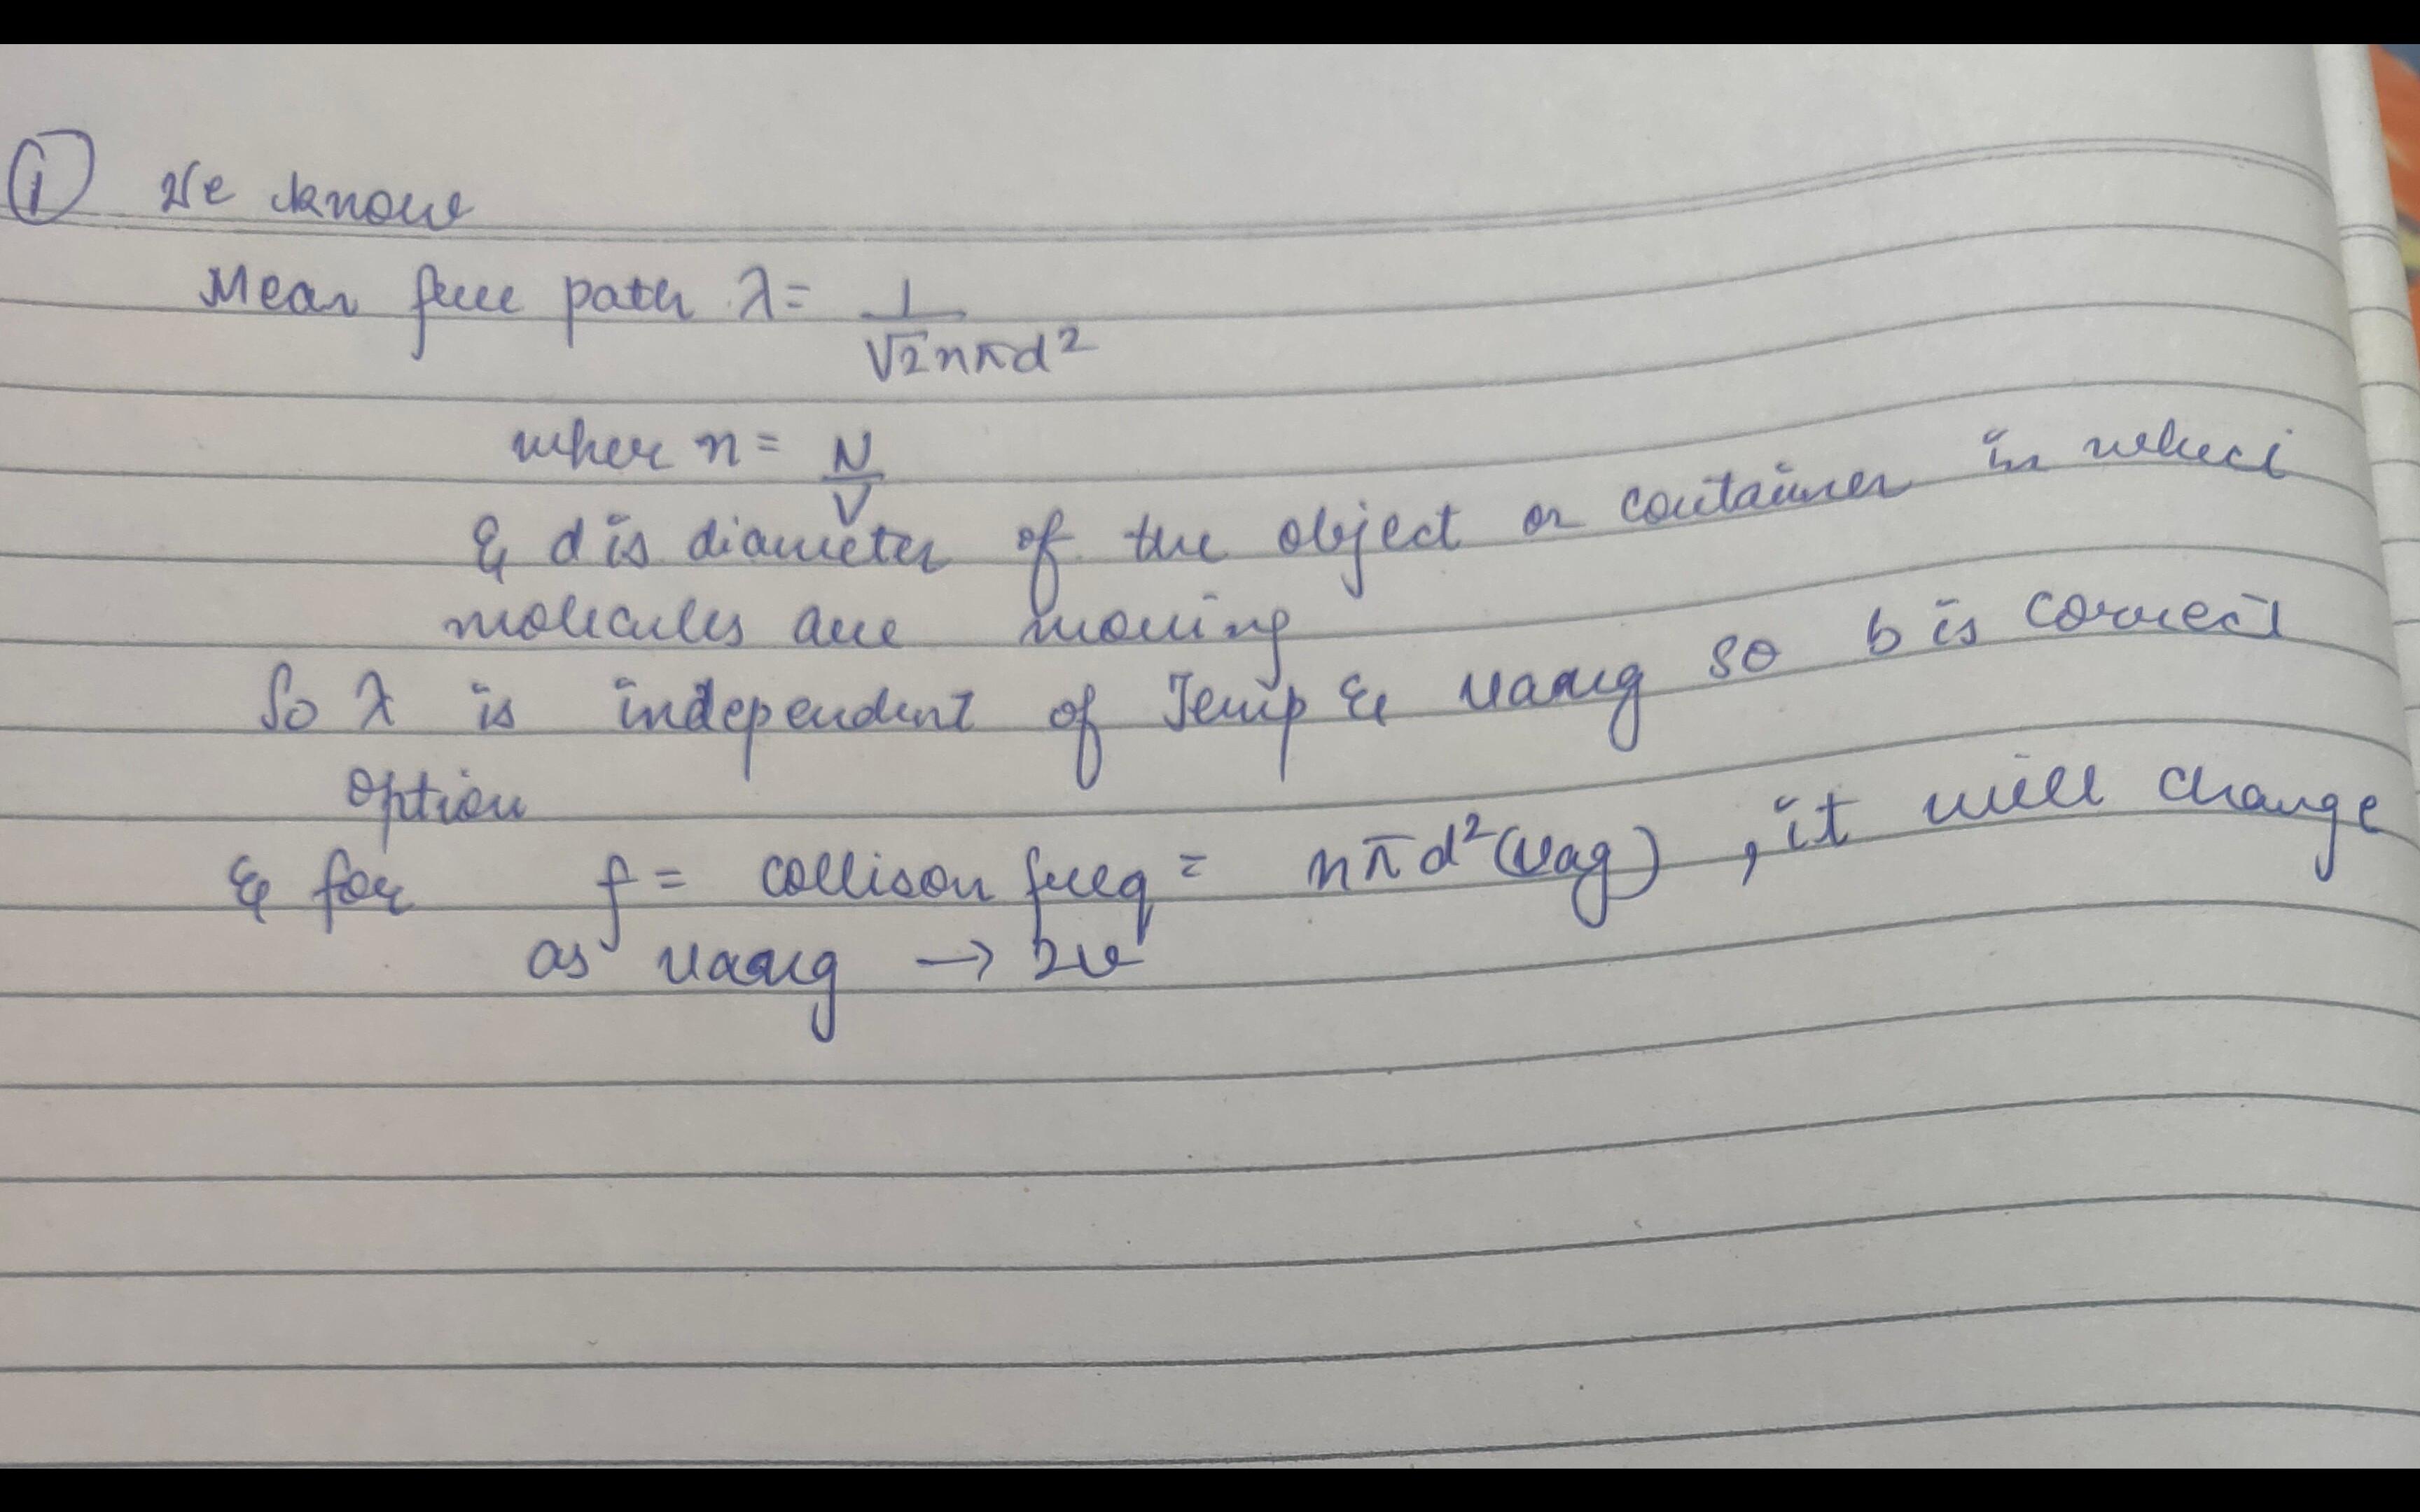 ① We know
Mean free path λ = 1/√2nπd²
where n = N/V
& d is diameter of the object or container in which
molecules are moving
So λ is independent of Temp & vavg so b is correct
option
& for f = collison freq = nπd²(vag), it will change
as vavg → 2v